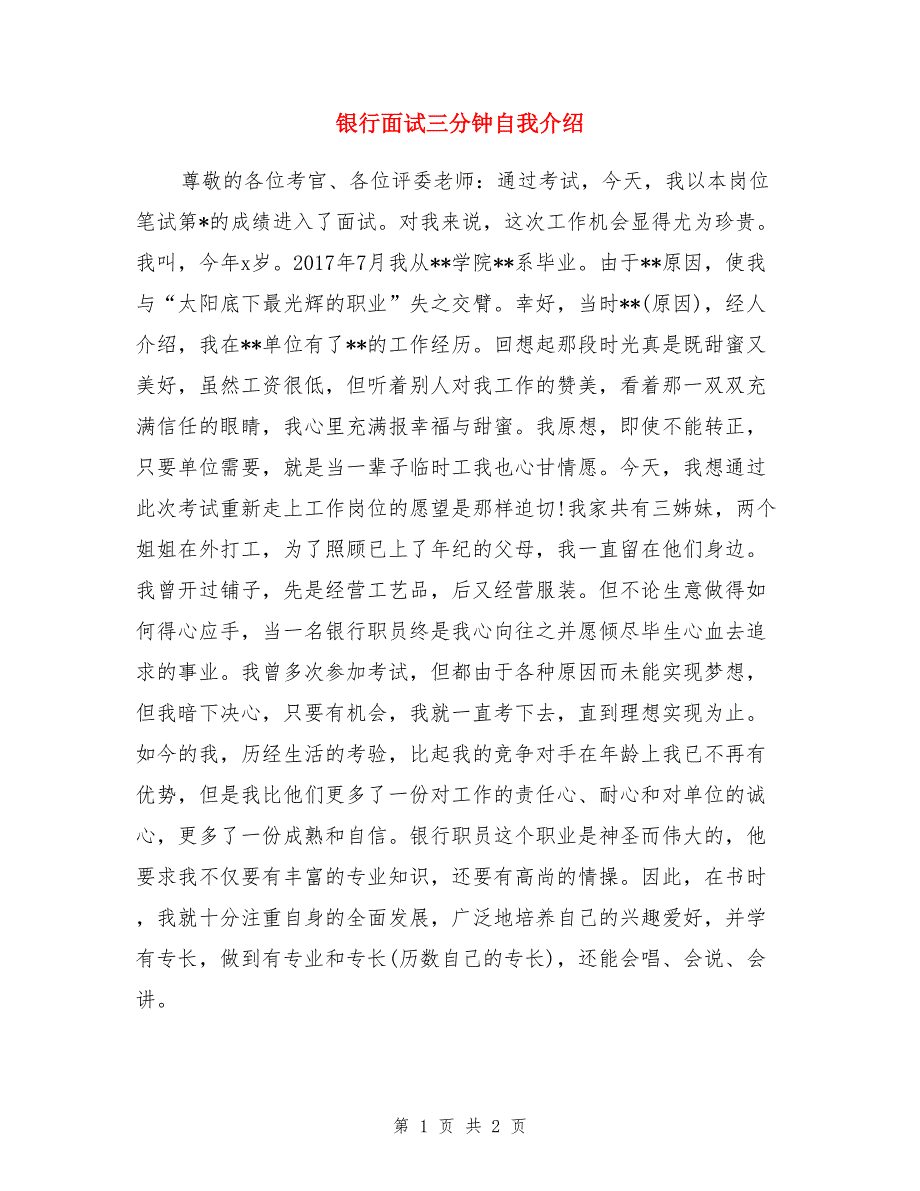 银行面试三分钟自我介绍
尊敬的各位考官、各位评委老师：通过考试，今天，我以本岗位
笔试第*的成绩进入了面试。对我来说，这次工作机会显得尤为珍贵。
我叫，今年x岁。2017年7月我从**学院**系毕业。由于**原因，使我
与“太阳底下最光辉的职业”失之交臂。幸好，当时**(原因)，经人
介绍，我在**单位有了**的工作经历。回想起那段时光真是既甜蜜又
美好，虽然工资很低，但听着别人对我工作的赞美，看着那一双双充
满信任的眼睛，我心里充满报幸福与甜蜜。我原想，即使不能转正，
只要单位需要，就是当一辈子临时工我也心甘情愿。今天，我想通过
此次考试重新走上工作岗位的愿望是那样迫切!我家共有三姊妹，两个
姐姐在外打工，为了照顾已上了年纪的父母，我一直留在他们身边。
我曾开过铺子，先是经营工艺品，后又经营服装。但不论生意做得如
何得心应手，当一名银行职员终是我心向往之并愿倾尽毕生心血去追
求的事业。我曾多次参加考试，但都由于各种原因而未能实现梦想，
但我暗下决心，只要有机会，我就一直考下去，直到理想实现为止。
如今的我，历经生活的考验，比起我的竞争对手在年龄上我已不再有
优势，但是我比他们更多了一份对工作的责任心、耐心和对单位的诚
心，更多了一份成熟和自信。银行职员这个职业是神圣而伟大的，他
要求我不仅要有丰富的专业知识，还要有高尚的情操。因此，在书时
，我就十分注重自身的全面发展，广泛地培养自己的兴趣爱好，并学
有专长，做到有专业和专长(历数自己的专长)，还能会唱、会说、会
讲。
第 1 页 共 2 页